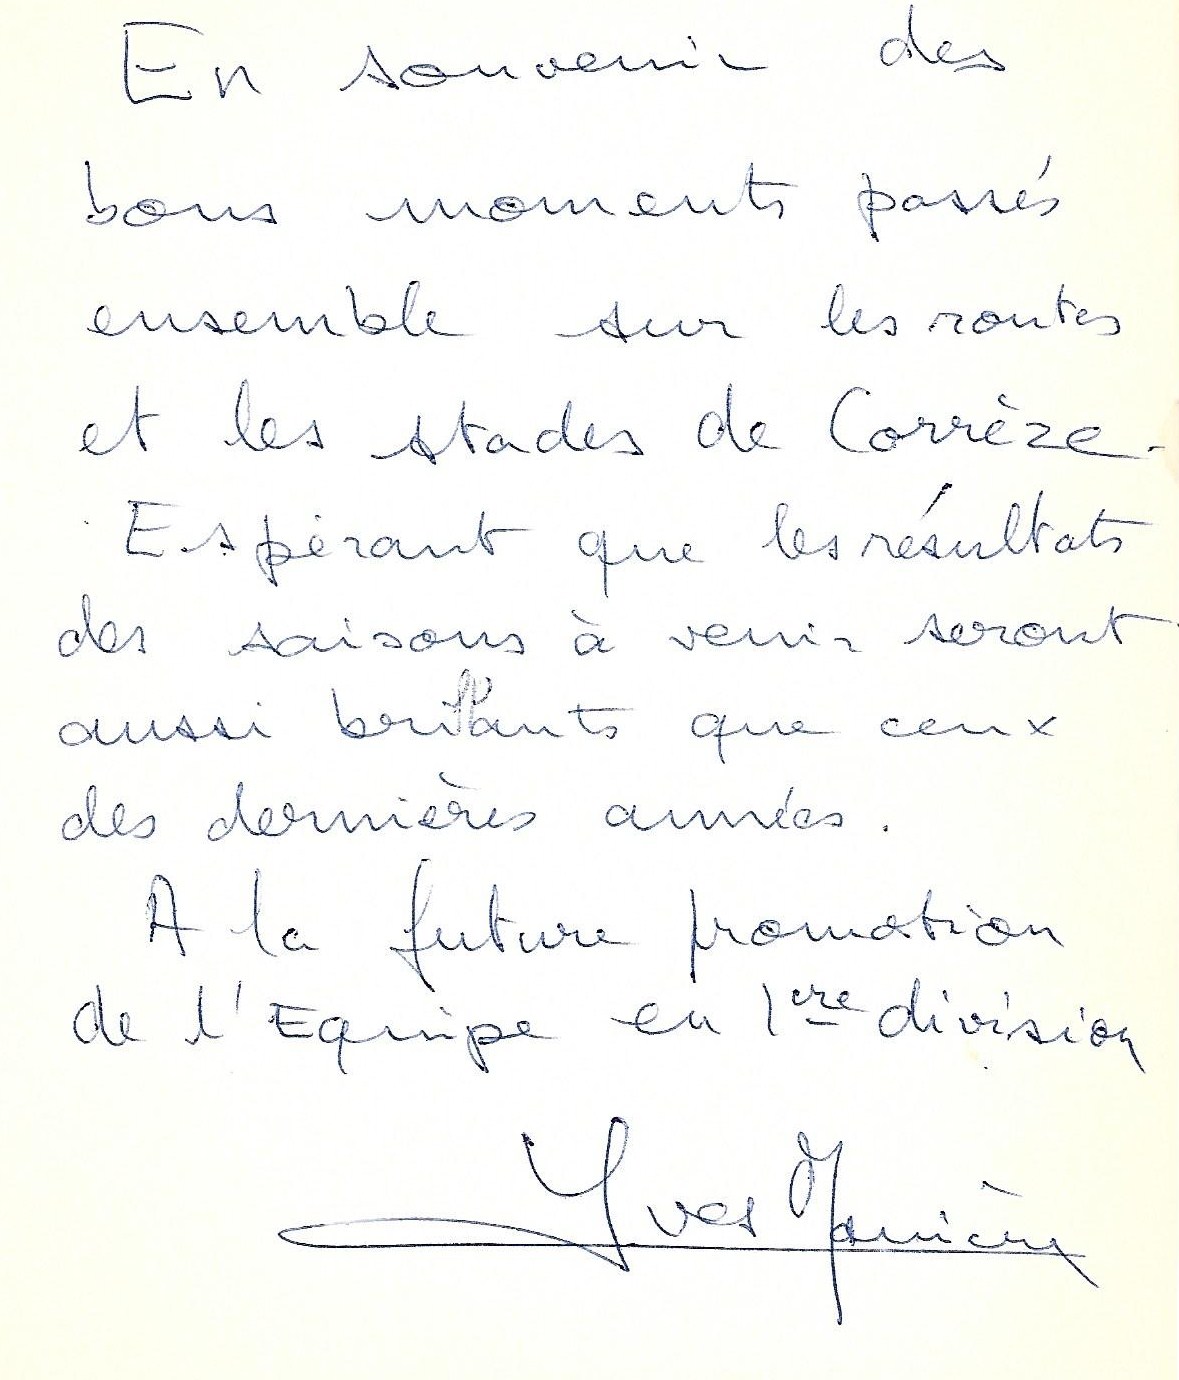 En souvenir des
bons moments passés
ensemble sur les routes
et les stades de Corrèze.
Espérant que les résultats
des saisons à venir seront
aussi brillants que ceux
des dernières années.
A la future promotion
de l'Equipe en 1ere division
Yves Manière